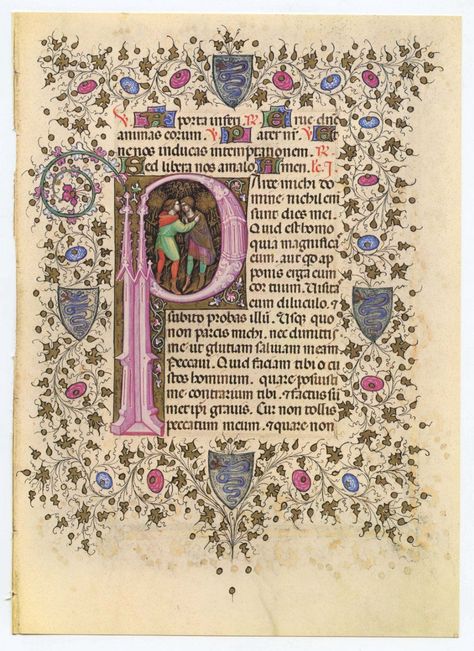 ℣ A porta inferi ℟ Erue dñe
animas eorum. ℣ Pater nr̄. ℣ Et
ne nos inducas intemptationem. ℟
Sed libera nos amalo Amen. lc. I.
Parce michi do
mine nichil eni
sunt dies mei.
Quid est homo
quia magnifica
eum. aut qd ap
ponis erga eum
cor tuum. Visita
eum diluculo. &
subito probas illū. Usq; quo
non parcis michi. nec dimittis
me ut glutiam saliuam meam.
Peccaui. Quid faciam tibi o cu
stos hominum. quare posuisti
me contrarium tibi. & factus sū
met ip̄i grauis. Cur non tollis
peccatum meum. & quare non